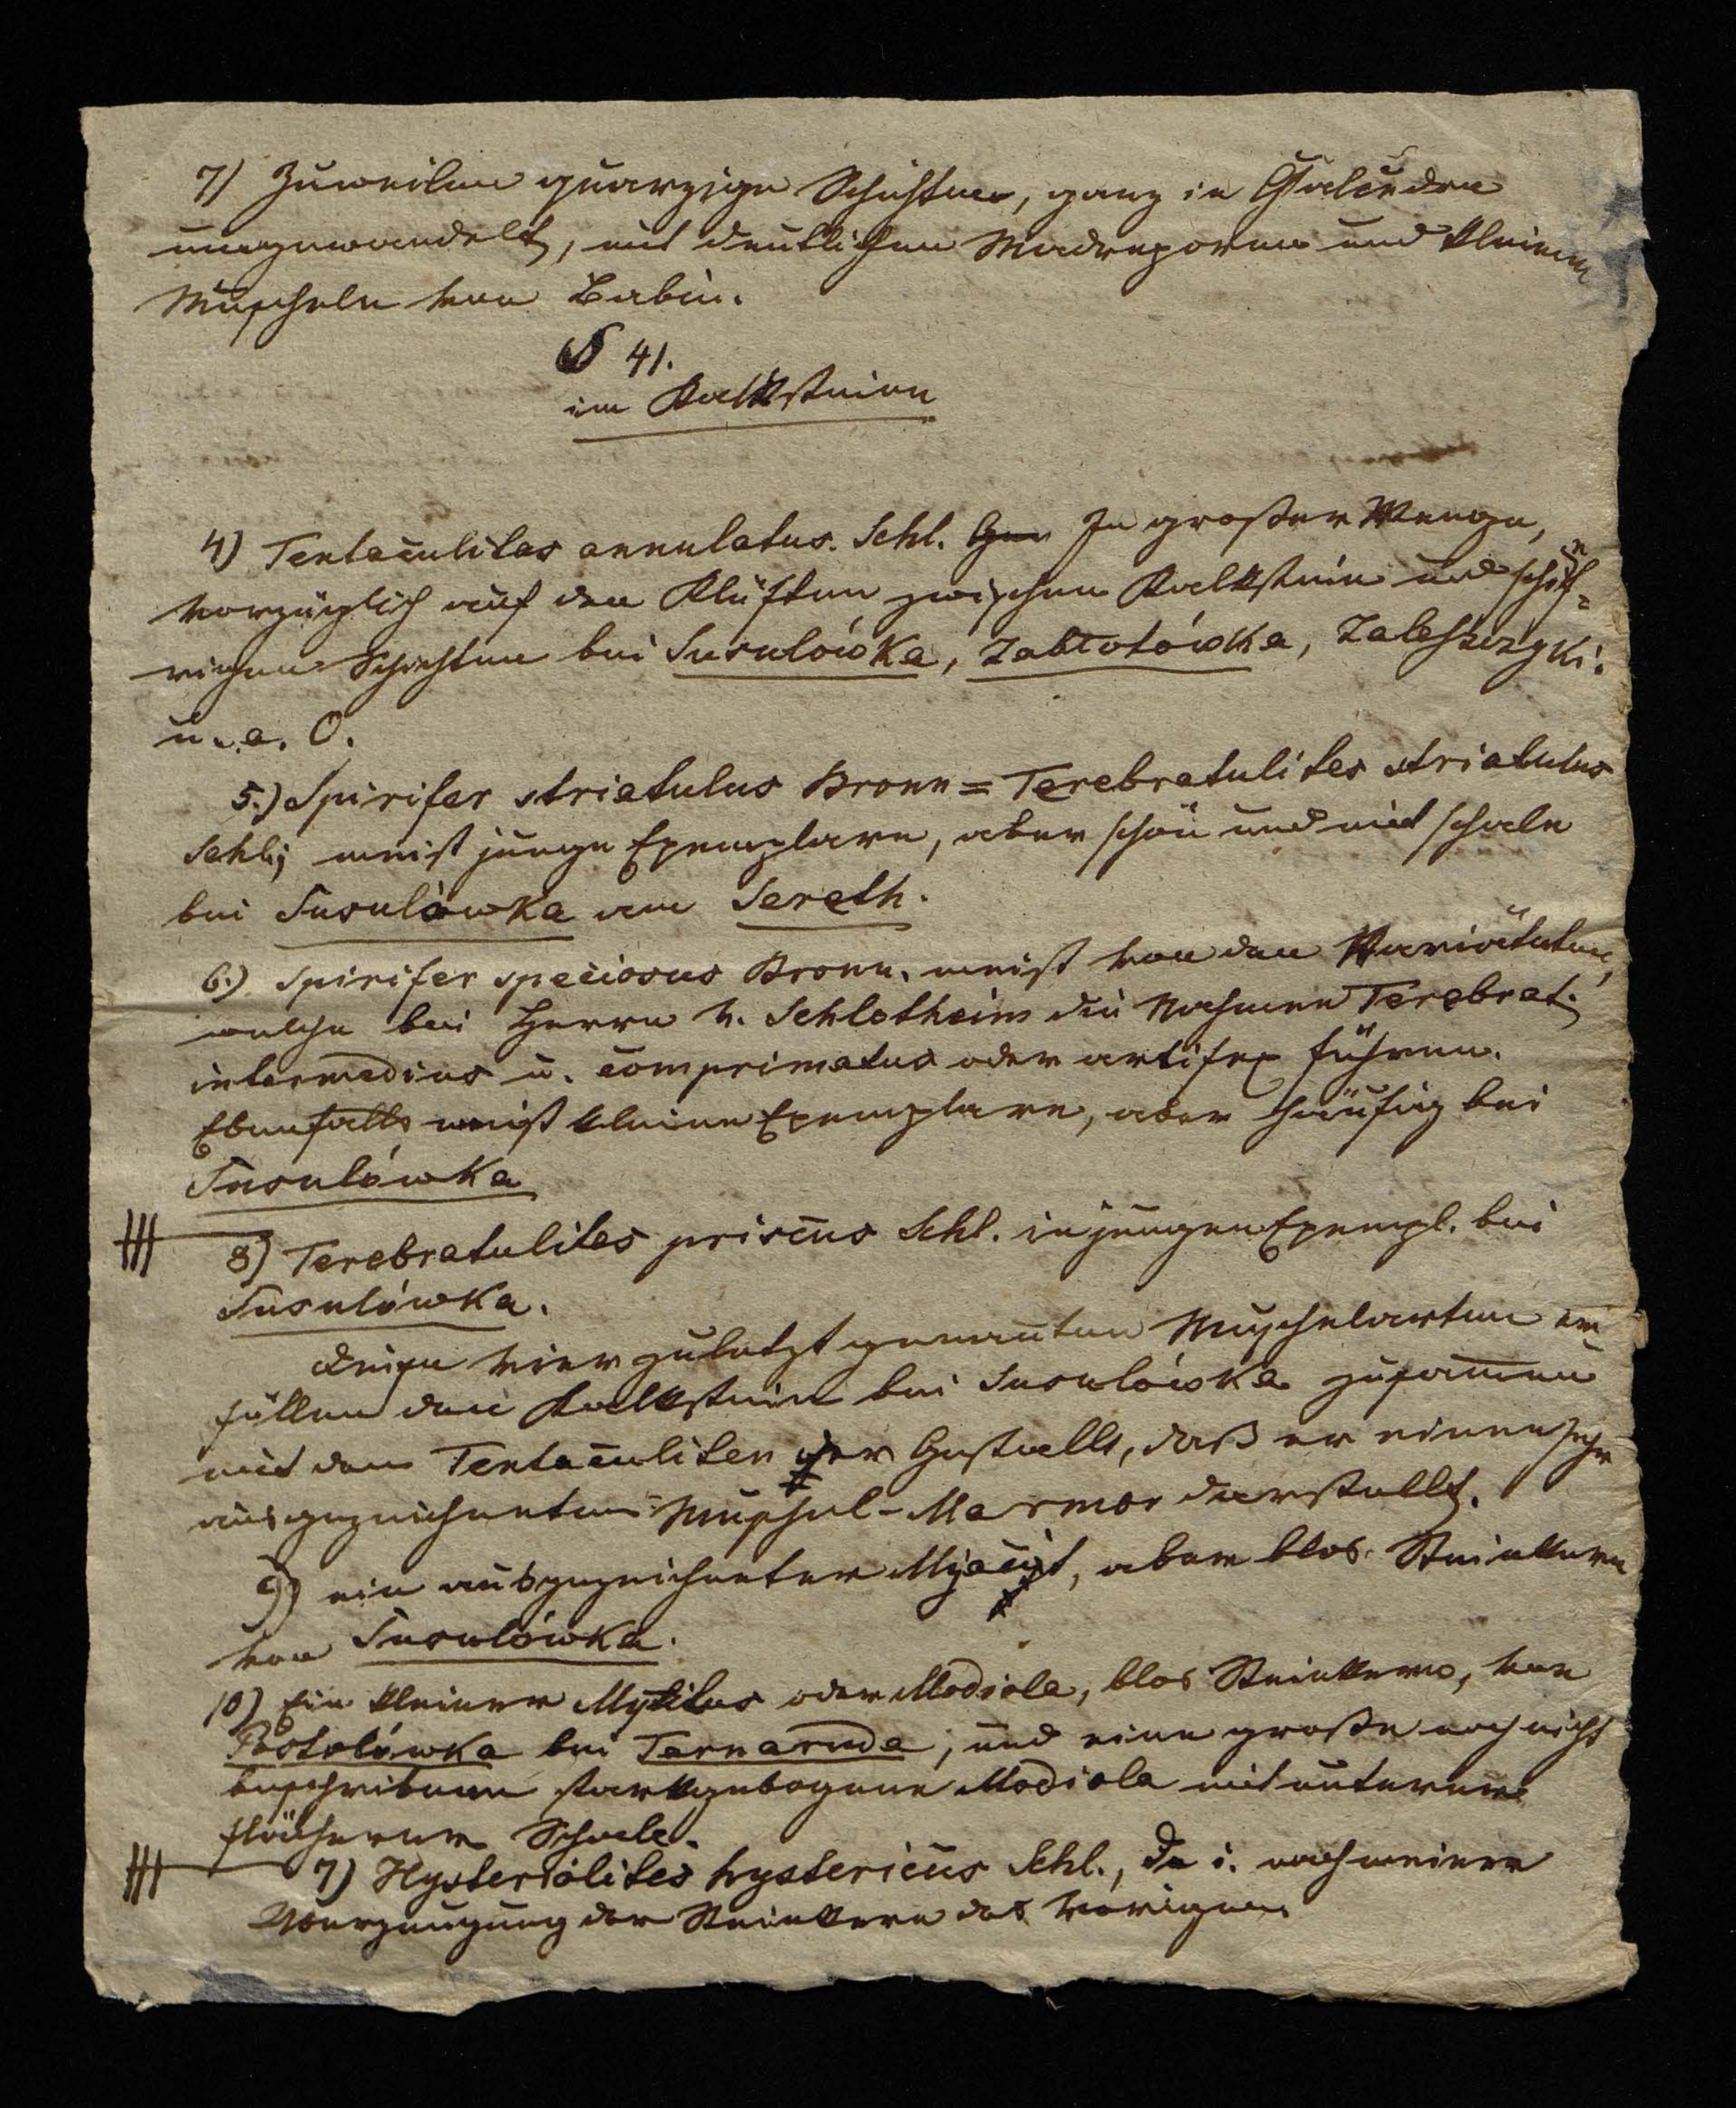 7) Zuweilen quarzige Schichten, ganz in Calcedon
umgewandelt, mit deutlichen Madreporen und kleinen
Muscheln von Babin.
§ 41.
im Kalkstein
4) Tentaculites annulatus. Schl. In großer Menge,
vorzüglich auf den Klüften zwischen Kalkstein und schief=
rigen Schichten bei Susulówka, Zabłotówka, Zaleszczyki.
u. a. O.
5.) Spirifer striatulus Bronn = Terebratulites striatulus
Schl; meist junge Exemplare, aber schön und mit Schale
bei Susulówka am Sereth.
6.) Spirifer speciosus Bronn. meist von den Varietäten,
welche bei Herrn v. Schlotheim die Nahmen Terebrat.
intermedius u. comprimatus oder artifex führen.
Ebenfalls meist kleine Exemplare, aber häufig bei
Susulówka
8) Terebratulites priscus Schl. in jungen Exempl. bei
Susulówka.
Diese vier zuletzt genanten Muschelarten er
füllen den Kalkstein bei Susulówka zusam̄en
mit den Tentaculiten der Gestallt, daß er einen sehr
ausgezeichneten Muschel-Marmor darstellt.
9) ein ausgezeichneter Myacit, aber blos Steinkern
von Susulówka.
10) Ein kleiner Mytilus oder Modiola, blos Steinkern, von
Postolówka bei Tarnaruda, und eine große noch nicht
beschriebene starkgebogene Modiola mit unterer
flacherer Schale.
7) Hysteriolites hystericus Schl., d. i. nach meiner
Überzeugung der Steinkern des Vorigen